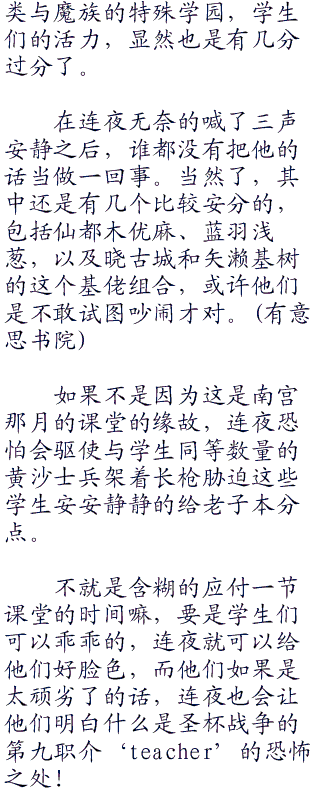 类与魔族的特殊学园，学生
们的活力，显然也是有几分
过分了。
在连夜无奈的喊了三声
安静之后，谁都没有把他的
话当做一回事。当然了，其
中还是有几个比较安分的，
包括仙都木优麻、蓝羽浅
葱，以及晓古城和矢濑基树
的这个基佬组合，或许他们
是不敢试图吵闹才对。(有意
思书院)
如果不是因为这是南宫
那月的课堂的缘故，连夜恐
怕会驱使与学生同等数量的
黄沙士兵架着长枪胁迫这些
学生安安静静的给老子本分
点。
不就是含糊的应付一节
课堂的时间嘛，要是学生们
可以乖乖的，连夜就可以给
他们好脸色，而他们如果是
太顽劣了的话，连夜也会让
他们明白什么是圣杯战争的
第九职介‘teacher’的恐怖
之处！